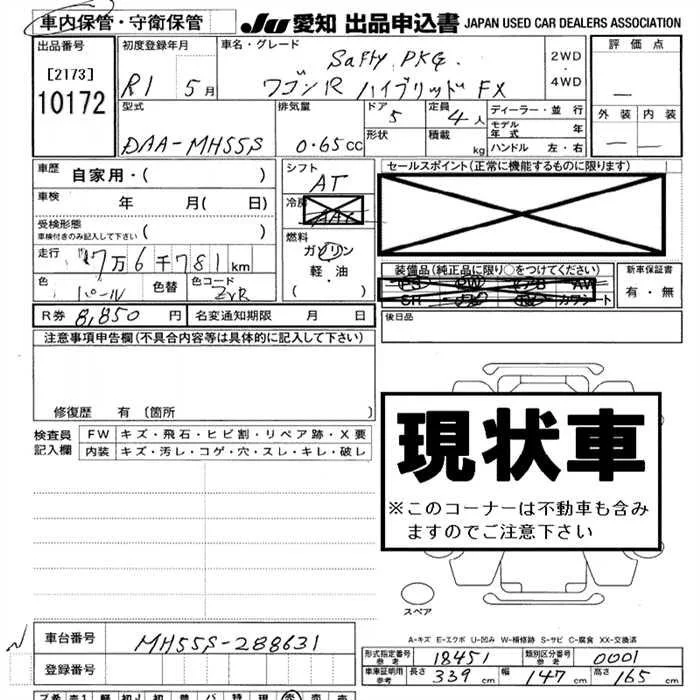 車内保管・守衛保管 JU 愛知 出品申込書 JAPAN USED CAR DEALERS ASSOCIATION
出品番号 初度登録年月 車名・グレード 評価点
[2173] R1 5月 Safty PKG. 2WD
10172 ワゴンR ハイブリッド FX 4WD
型式 排気量 ドア 定員 ディーラー・並行 外装 内装
DAA-MH55S 0.65CC 5 4人 モデル年式 年
形状 積載 kg ハンドル 左・右
車歴 自家用・( ) シフト セールスポイント(正常に機能するものに限ります)
AT
車検 年 月( 日) 冷房 AAC
受検形態 ( )
車検付きのみ記入して下さい 燃料
走行 7万6千781km ガソリン
軽・油 装備品(純正品に限り○をつけてください) 新車保証書
色 パール 色替 色コード ZVR ・( ) PS PW エアB AW 有・無
SR カワシート
R券 8,850円 名変通知期限 月 日 後日品
注意事項申告欄(不具合内容等は具体的に記入して下さい)
修復歴 有〔箇所 〕
現状車
※このコーナーは不動車も含み
ますのでご注意下さい
検査員 FW キズ・飛石・ヒビ割・リペア跡・X要
記入欄 内装 キズ・汚レ・コゲ・穴・スレ・キレ・破レ
スペア
A-キズ E-エクボ U-凹み W-補修跡 S-サビ C-腐食 XX-交換済
車台番号 MH55S-288631
形式指定番号 参考 18451 類別区分番号 参考 0001
登録番号 車庫証明用 参考 長さ 339cm 幅 147cm 高さ 165cm